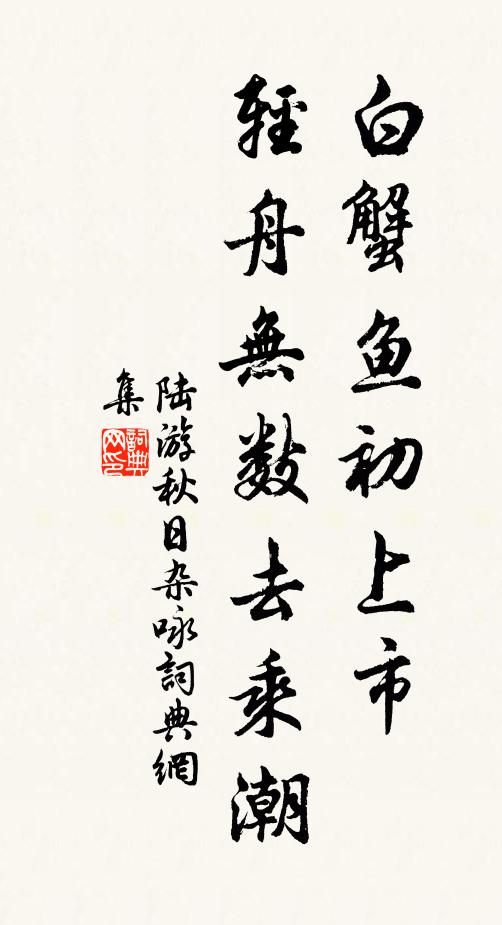 白蟹鱼初上市
輕舟無数去乘潮
陆游秋日杂咏詞典網
集
詞典网印